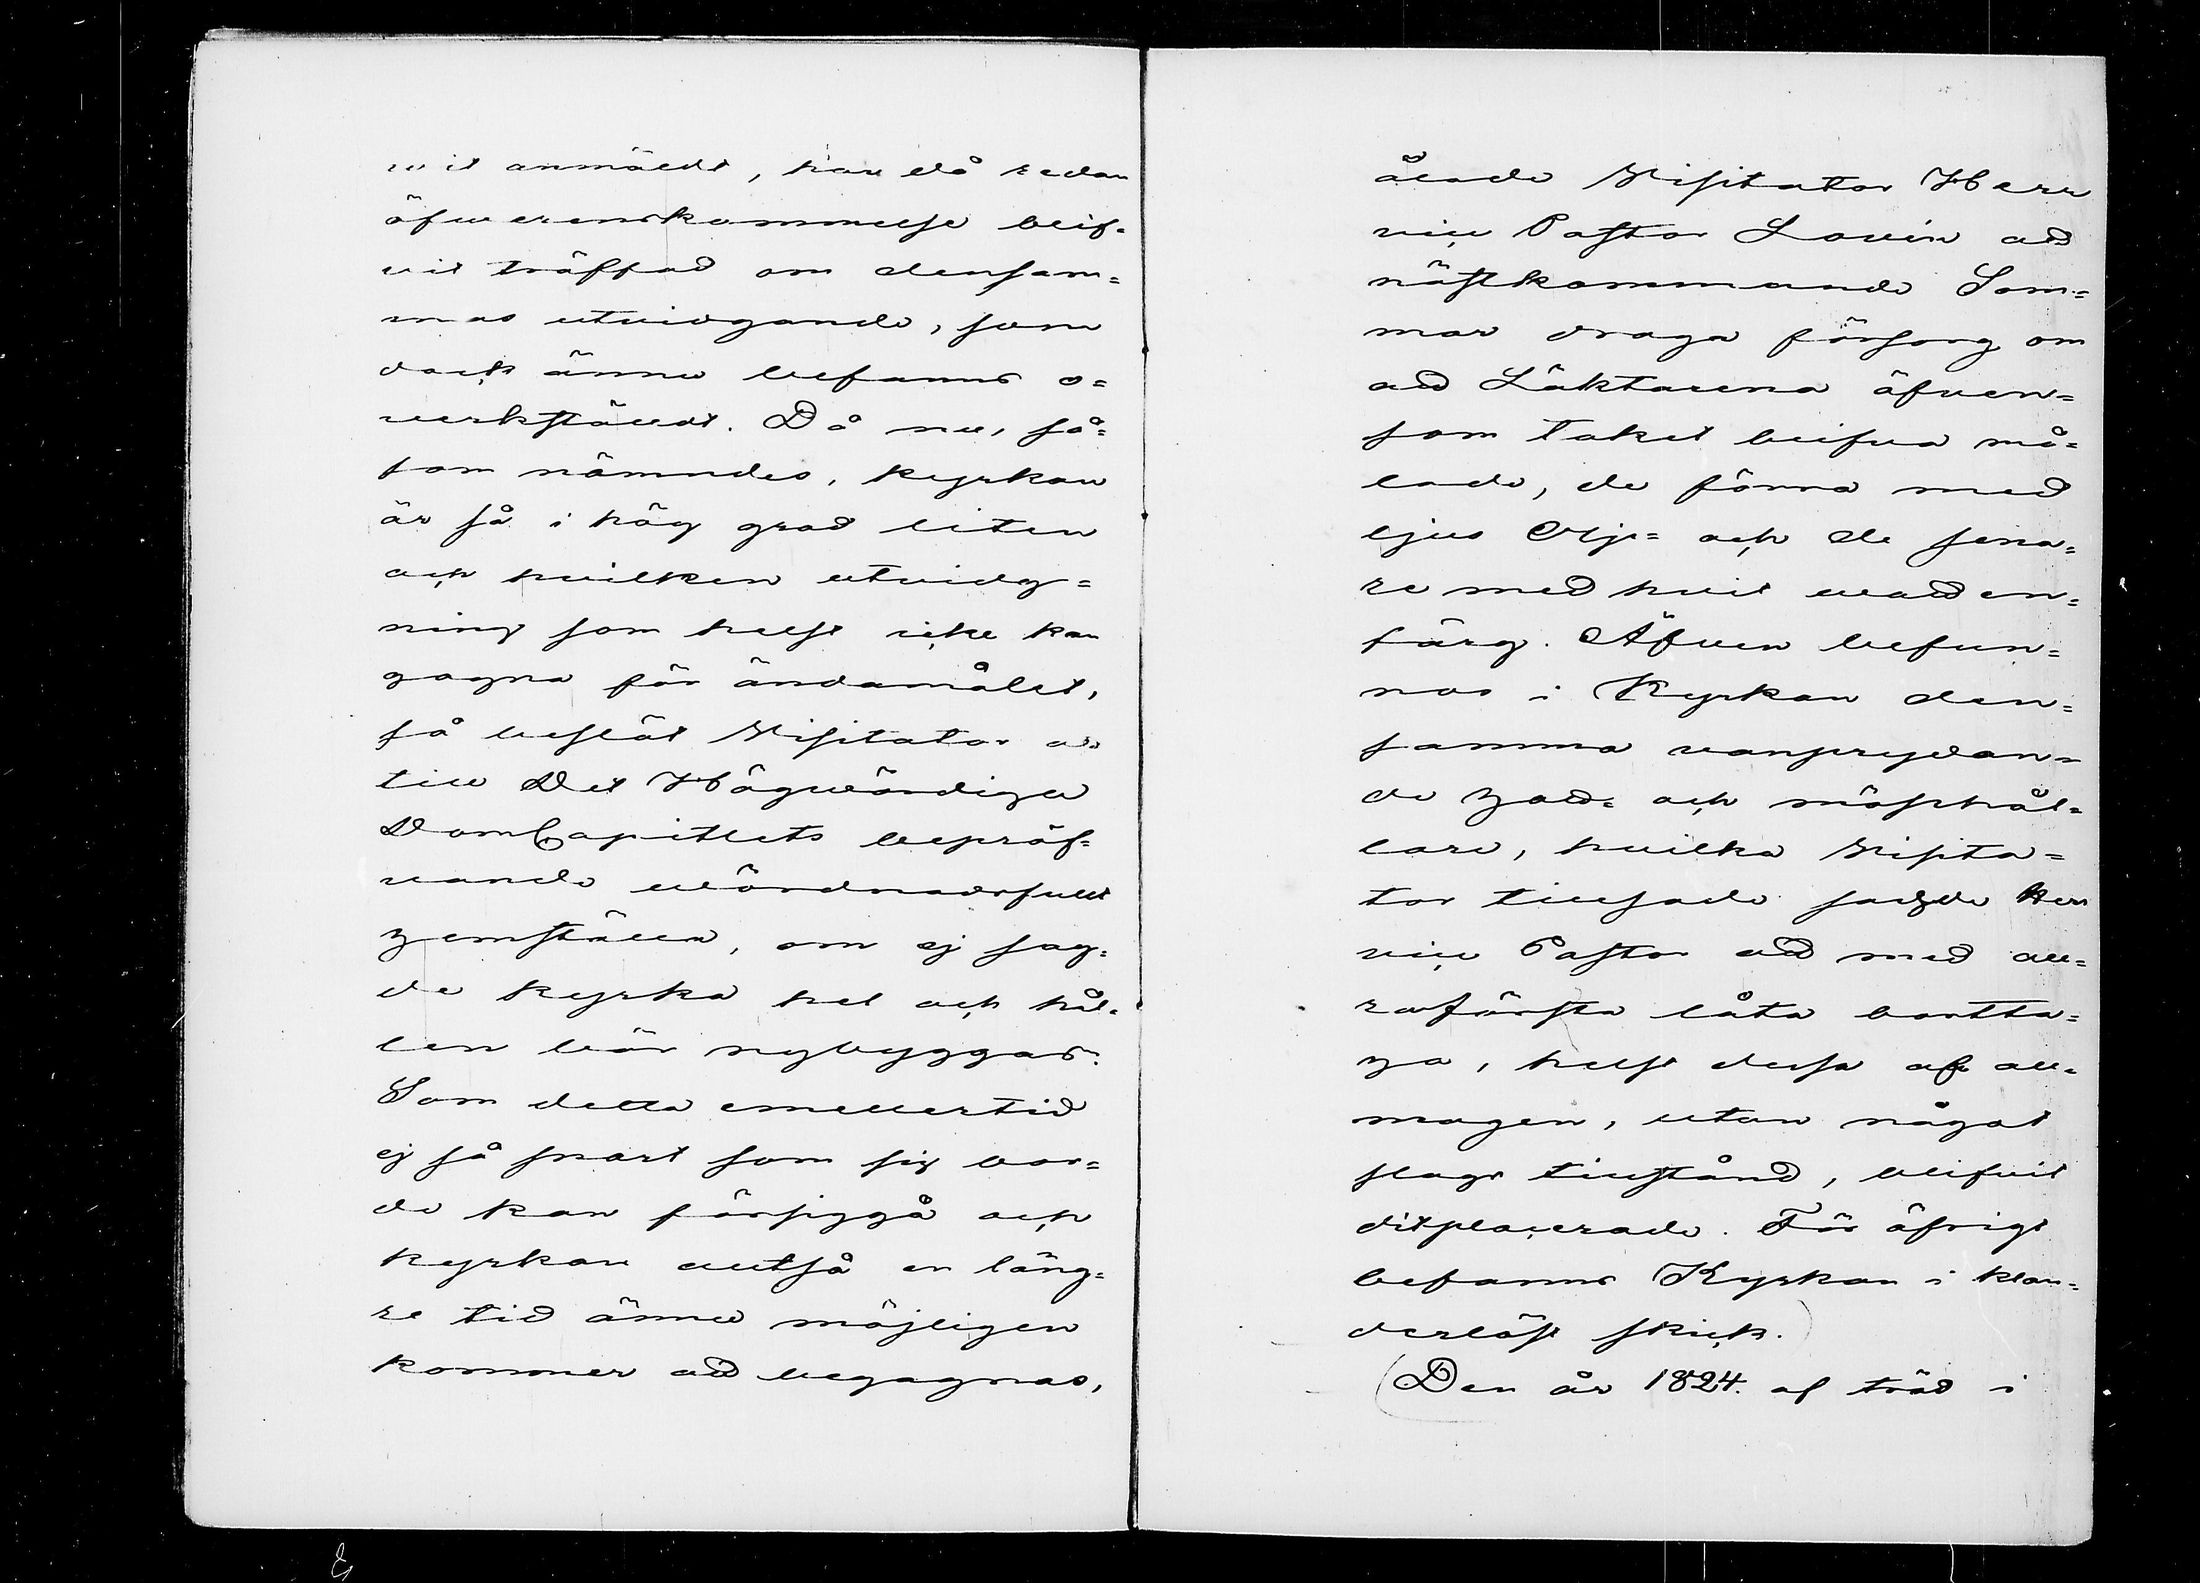 wit anmäldt, har då redan
öfwerenskommelse blif=
vit träffad om densam=
mas utvidgande, som
dock ännu befanns o=
verkstäldt. Då nu, så=
som nämndes, kyrkan
är så i hög grad liten
och hvilken utvidg=
ning som helst icke kan
gagna för ändamålet,
så beslöt Visitator att
till Det Högwördiga
DomCapitlets bepröf=
vande wördnadsfullt
hemställa, om ej sag=
de kyrka hel och hål=
len bör nybyggas.
Som detta emellertid
ej så snart som sig bor=
de kan försiggå och
kyrkan altså en läng=
re tid ännu möjligen
kommer att begagnas,
ålade Visitator Herr
vice Pastor Lovén att
nästkommande Som=
mar draga försorg om
att Läktarena äfven=
som taket blifva må=
lade, de förra med
ljus Olje= och de sena=
re med hvit watten=
färg. Äfven befun=
nos i Kyrkan den=
samma vanprydan=
de hatt= och mösshål=
lare, hvilka Visita=
tor tillsade sagde Herr
vice Pastor att med all=
raförsta låta bortta=
ga, helst dessa af all=
mogen, utan något
slags tillstånd, blifvit
ditplacerade. För öfrigt
befanns Kyrkan i klan=
derlöst skick.
Den år 1824. af träd i